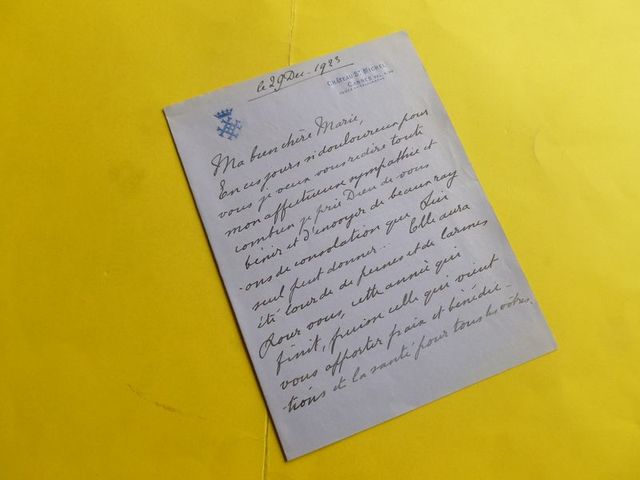 le 29 Dec. 1923
CHÂTEAU ST MICHEL
CANNES
Ma bien chère Marie,
En ces jours si douloureux pour
vous je veux vous redire toute
mon affectueuse sympathie et
combien je prie Dieu de vous
bénir et d'envoyer de beaux ray
-ons de consolation que Lui
seul peut donner. Elle aura
été lourde de peines et de larmes
pour vous, cette année qui
finit, puisse celle qui vient
vous apporter paix et bénédic-
-tions et la santé pour tous les vôtres.